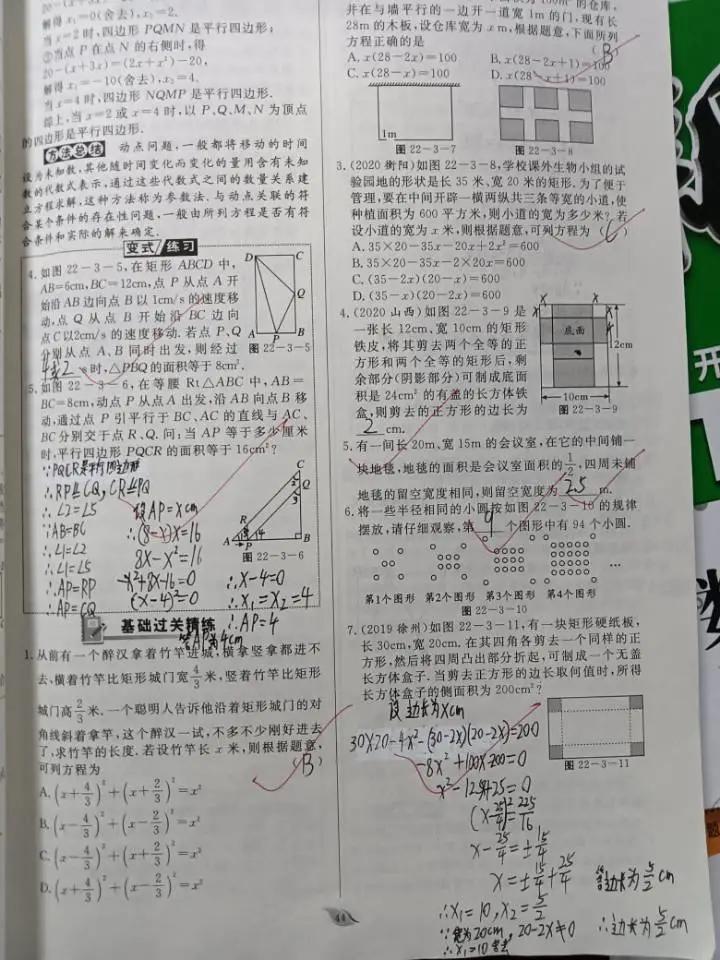 解得 x₁=0(舍去),x₂=2.
当 x=2 时,四边形 PQMN 是平行四边形;
②当点 P 在点 N 的右侧时,得
20-(x+3x)=(2x+x²)-20,
解得 x₁=-10(舍去),x₂=4.
当 x=4 时,四边形 NQMP 是平行四边形.
综上,当 x=2 或 x=4 时,以 P、Q、M、N 为顶点
的四边形是平行四边形.
方法总结 动点问题,一般都将移动的时间
设为未知数,其他随时间变化而变化的量用含有未知
数的代数式表示,通过这些代数式之间的数量关系建
立方程求解,这种方法称为参数法.与动点关联的符
合某个条件的存在性问题,一般由所列方程是否有符
合条件和实际的解来确定.
变式练习
4.如图 22-3-5,在矩形 ABCD 中,
AB=6cm,BC=12cm,点 P 从点 A 开
始沿 AB 边向点 B 以 1cm/s 的速度移
动,点 Q 从点 B 开始沿 BC 边向
点 C 以2cm/s 的速度移动.若点 P、Q
分别从点 A、B 同时出发,则经过
4或2 s时,△PBQ 的面积等于 8cm².
D C
Q
A P B
图 22-3-5
5.如图 22-3-6,在等腰 Rt△ABC 中,AB=
BC=8cm,动点 P 从点 A 出发,沿 AB 向点 B 移
动,通过点 P 引平行于 BC、AC 的直线与 AC、
BC 分别交于点 R、Q.问:当 AP 等于多少厘米
时,平行四边形 PQCR 的面积等于 16cm²?
∵PQCR是平行四边形
∴∠2=∠5
∵AB=BC
∴∠1=∠2
∴∠1=∠5
∴AP=RP
∴AP=CQ
设AP=xcm
∴(8-x)x=16
8x-x²=16
-x²+8x-16=0
(x-4)²=0
∴x-4=0
∴x₁=x₂=4
∴AP=4
答AP为4cm
C
R
Q
A P B
图 22-3-6
基础过关精练
1.从前有一个醉汉拿着竹竿进城,横拿竖拿都进不
去,横着竹竿比矩形城门宽4/3米,竖着竹竿比矩形
城门高2/3米.一个聪明人告诉他沿着矩形城门的对
角线斜着拿竿,这个醉汉一试,不多不少刚好进去
了,求竹竿的长度.若设竹竿长 x 米,则根据题意,
可列方程为 (B)
A.(x+4/3)²+(x+2/3)²=x²
B.(x-4/3)²+(x-2/3)²=x²
C.(x-4/3)²+(x+2/3)²=x²
D.(x+4/3)²+(x-2/3)²=x²
并在与墙平行的一边开一道宽 1m 的门,现有长
28m 的木板,设仓库宽为 x m,根据题意,下面所列
方程正确的是 (B)
A.x(28-2x)=100 B.x(28-2x+1)=100
C.x(28-x)=100 D.x(28-x+1)=100
1m
图 22-3-7
图 22-3-8
3.(2020 衡阳)如图 22-3-8,学校课外生物小组的试
验园地的形状是长 35 米、宽 20 米的矩形.为了便于
管理,要在中间开辟一横两纵共三条等宽的小道,使
种植面积为 600 平方米,则小道的宽为多少米?若
设小道的宽为 x 米,则根据题意,可列方程为 (C)
A.35×20-35x-20x+2x²=600
B.35×20-35x-2×20x=600
C.(35-2x)(20-x)=600
D.(35-x)(20-2x)=600
4.(2020 山西)如图 22-3-9 是
一张长 12cm、宽 10cm 的矩形
铁皮,将其剪去两个全等的正
方形和两个全等的矩形后,剩
余部分(阴影部分)可制成底面
积是 24cm² 的有盖的长方体铁
盒,则剪去的正方形的边长为
2 cm.
底面
12cm
10cm
图 22-3-9
5.有一间长 20m、宽 15m 的会议室,在它的中间铺一
块地毯,地毯的面积是会议室面积的1/2,四周未铺
地毯的留空宽度相同,则留空宽度为 2.5 m.
6.将一些半径相同的小圆按如图 22-3-10 的规律
摆放,请仔细观察,第 9 个图形中有 94 个小圆.
第1个图形 第2个图形 第3个图形 第4个图形
图 22-3-10
7.(2019 徐州)如图 22-3-11,有一块矩形硬纸板,
长 30cm,宽 20cm.在其四角各剪去一个同样的正
方形,然后将四周凸出部分折起,可制成一个无盖
长方体盒子.当剪去正方形的边长取何值时,所得
长方体盒子的侧面积为 200cm²?
设边长为xcm
30×20-4x²-(30-2x)(20-2x)=200
-8x²+100x-200=0
(x-25/4)²=225/16
x-25/4=±15/4
x=±15/4+25/4
∴x₁=10,x₂=5/2
∵宽为20cm,20-2x≠0
∴x₁=10舍去
∴边长为5/2cm
图 22-3-11
44